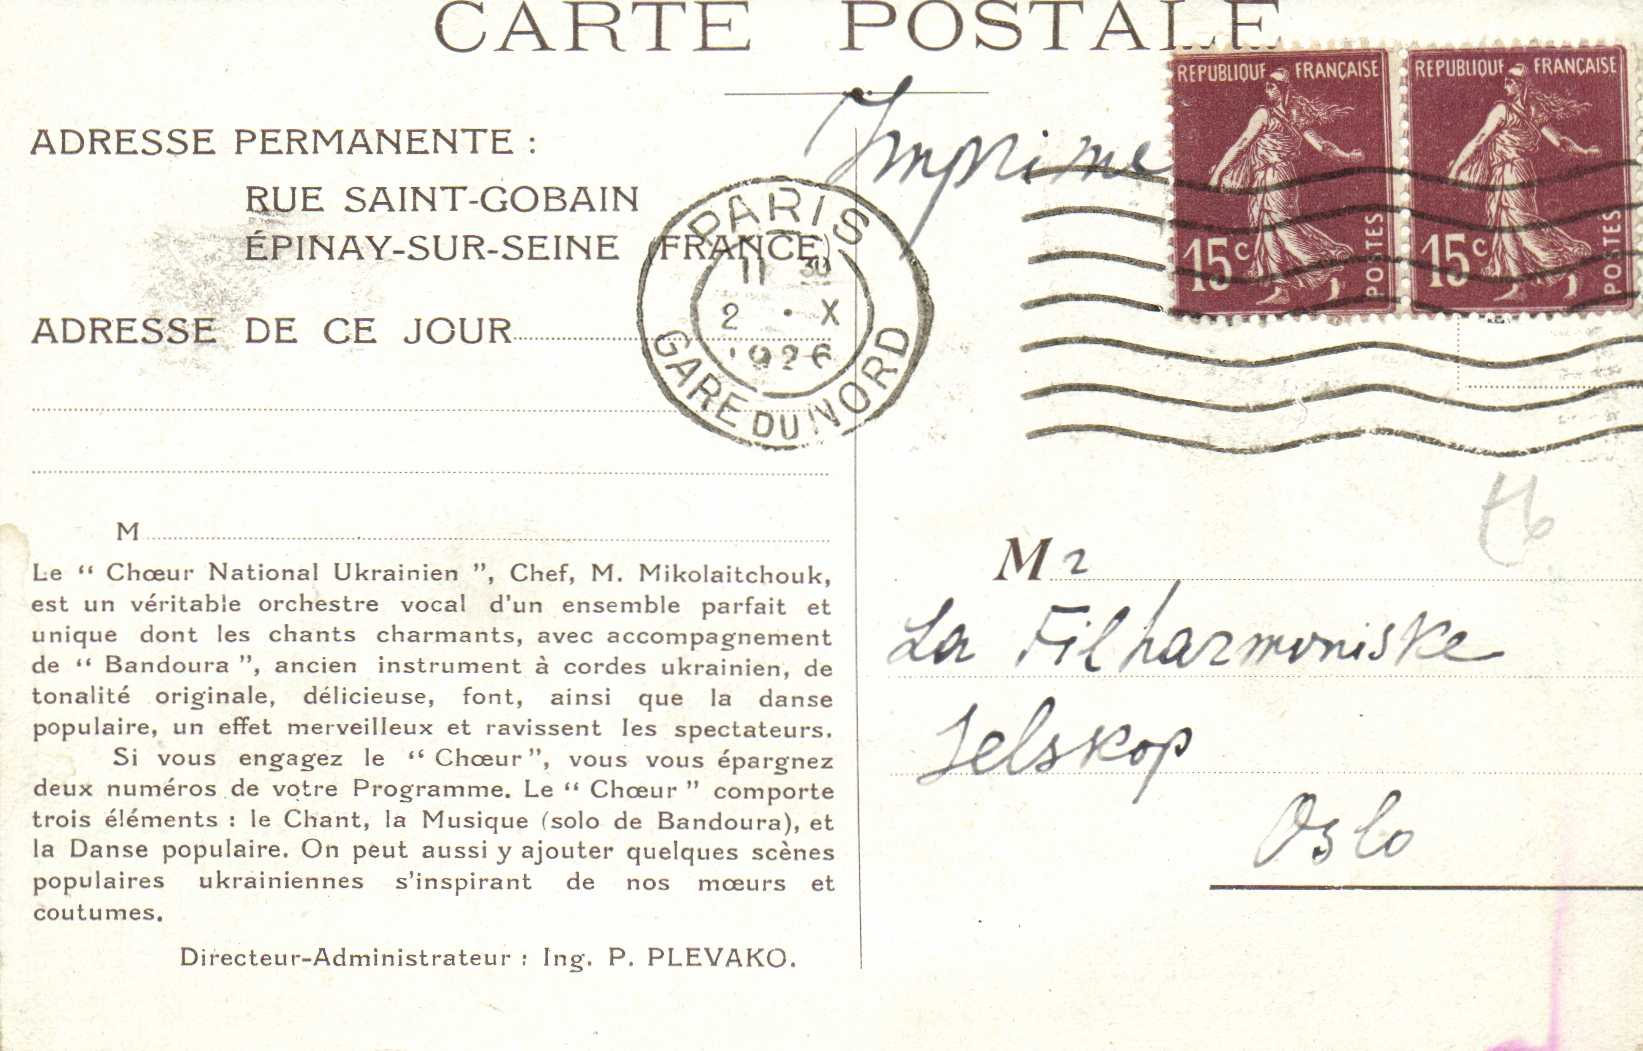 CARTE POSTALE
ADRESSE PERMANENTE :
RUE SAINT-GOBAIN
ÉPINAY-SUR-SEINE (FRANCE)
ADRESSE DE CE JOUR
M
Le “ Chœur National Ukrainien ”, Chef, M. Mikolaitchouk,
est un véritable orchestre vocal d'un ensemble parfait et
unique dont les chants charmants, avec accompagnement
de “ Bandoura ”, ancien instrument à cordes ukrainien, de
tonalité originale, délicieuse, font, ainsi que la danse
populaire, un effet merveilleux et ravissent les spectateurs.
Si vous engagez le “ Chœur ”, vous vous épargnez
deux numéros de votre Programme. Le “ Chœur ” comporte
trois éléments : le Chant, la Musique (solo de Bandoura), et
la Danse populaire. On peut aussi y ajouter quelques scènes
populaires ukrainiennes s'inspirant de nos mœurs et
coutumes.
Directeur-Administrateur : Ing. P. PLEVAKO.
Imprime
PARIS
11 30
2 · X
1926
GARE DU NORD
REPUBLIQUE FRANÇAISE
15c
POSTES
REPUBLIQUE FRANÇAISE
15c
POSTES
Mr
La Filharmoniske
Selskop
Oslo